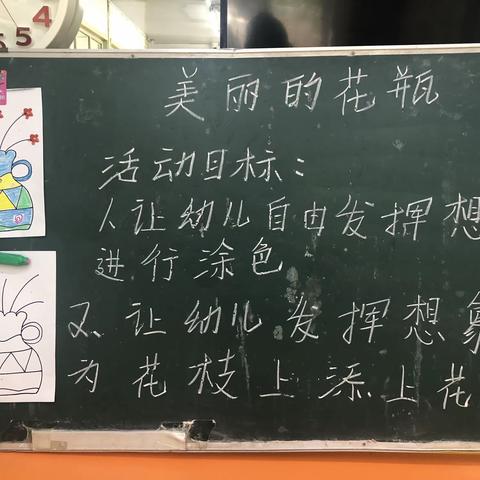 4
5
美丽的花瓶
活动目标:
1、让幼儿自由发挥想
进行涂色
2、让幼儿发挥想象
为花枝上添上花